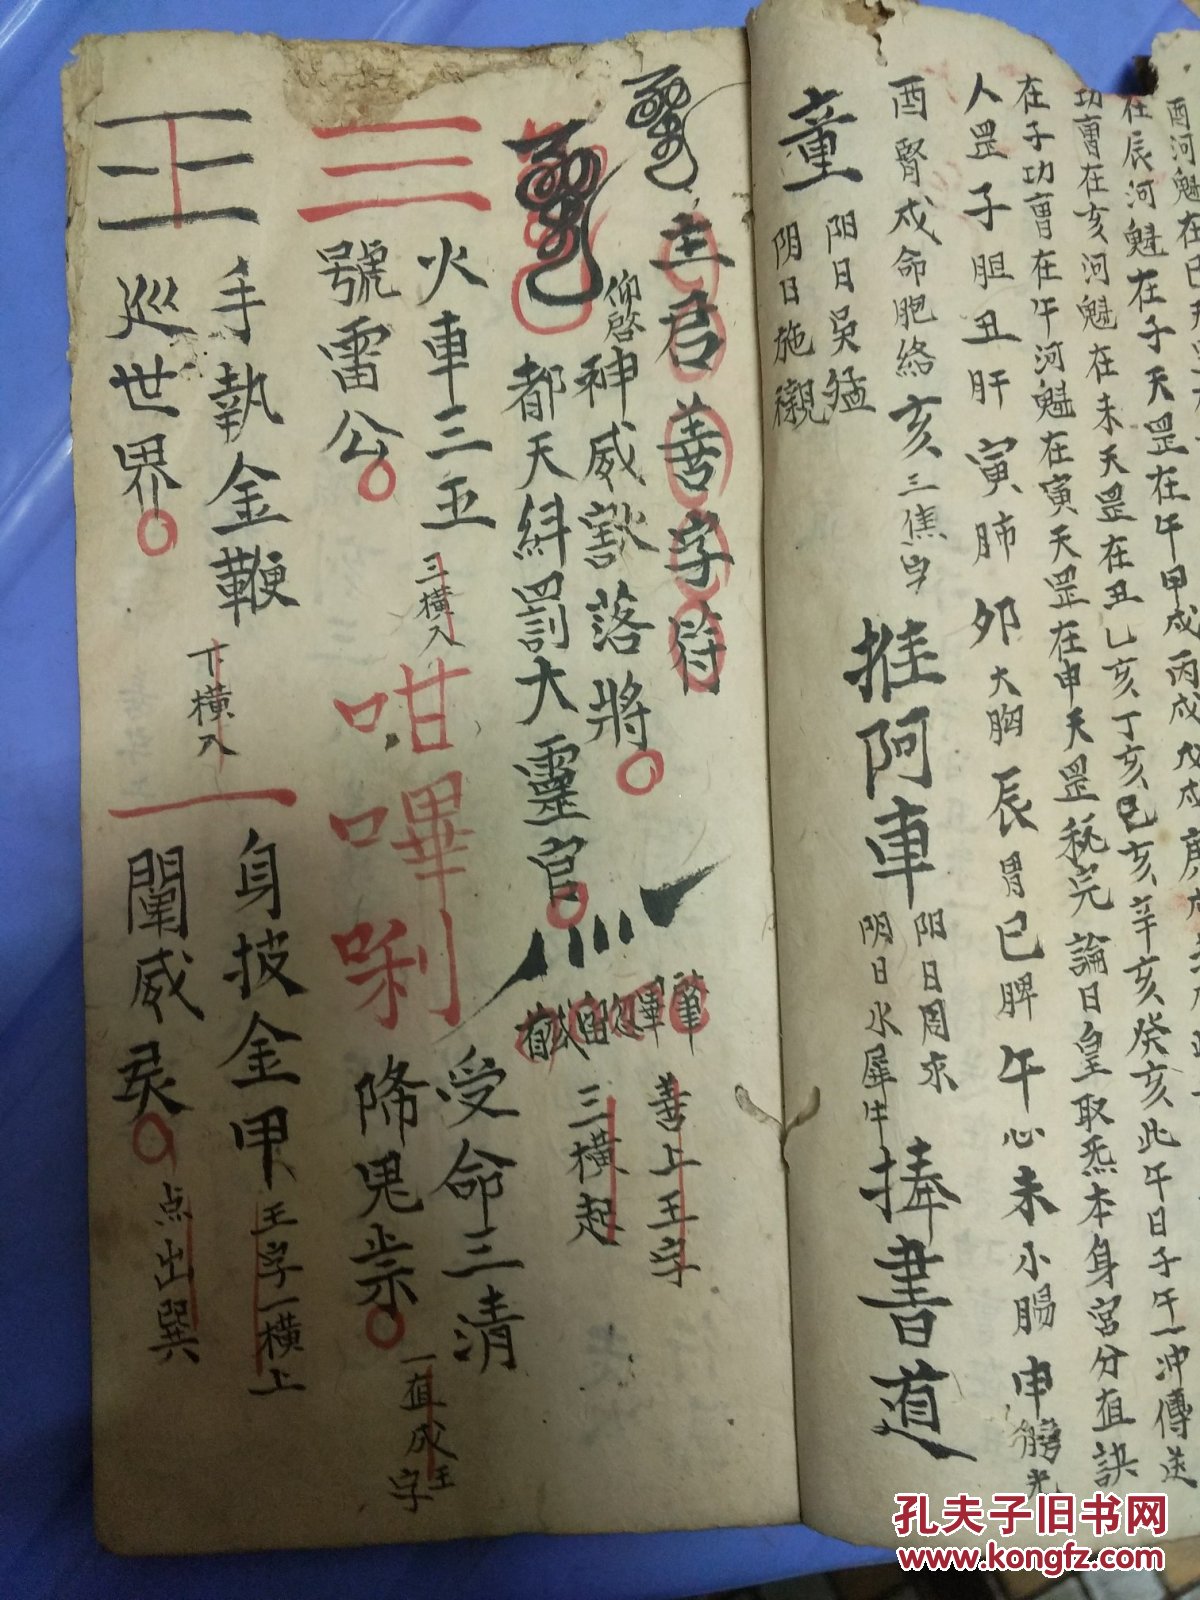 酉河魁在巳
在辰河魁在子天罡在午甲戌丙戌戊戌庚戌
功曹在亥河魁在未天罡在丑乙亥丁亥己亥辛亥癸亥此午日子午一冲傳送
在子功曹在午河魁在寅天罡在申天罡秘完論日皇取炁本身宮分直訣
人罡子胆丑肝寅肺卯大胸辰胃巳脾午心未小腸申膀光
酉腎戌命胞絡亥三焦
推阿車
阳日周
阴日水犀牛
捧書道
童
阳日吴猛
阴日施
主君善字符
仰啓
神威豁落將
都天糾罰大靈官
善上王字
三橫起
火車三五
號雷公
三橫入
咁嗶唎
受命三清
降鬼祟
一直成王字
王
手執金鞭
巡世界
下橫入
一
身披金甲
闡威灵
王字一橫上
点出巽
孔夫子旧书网
www.kongfz.com